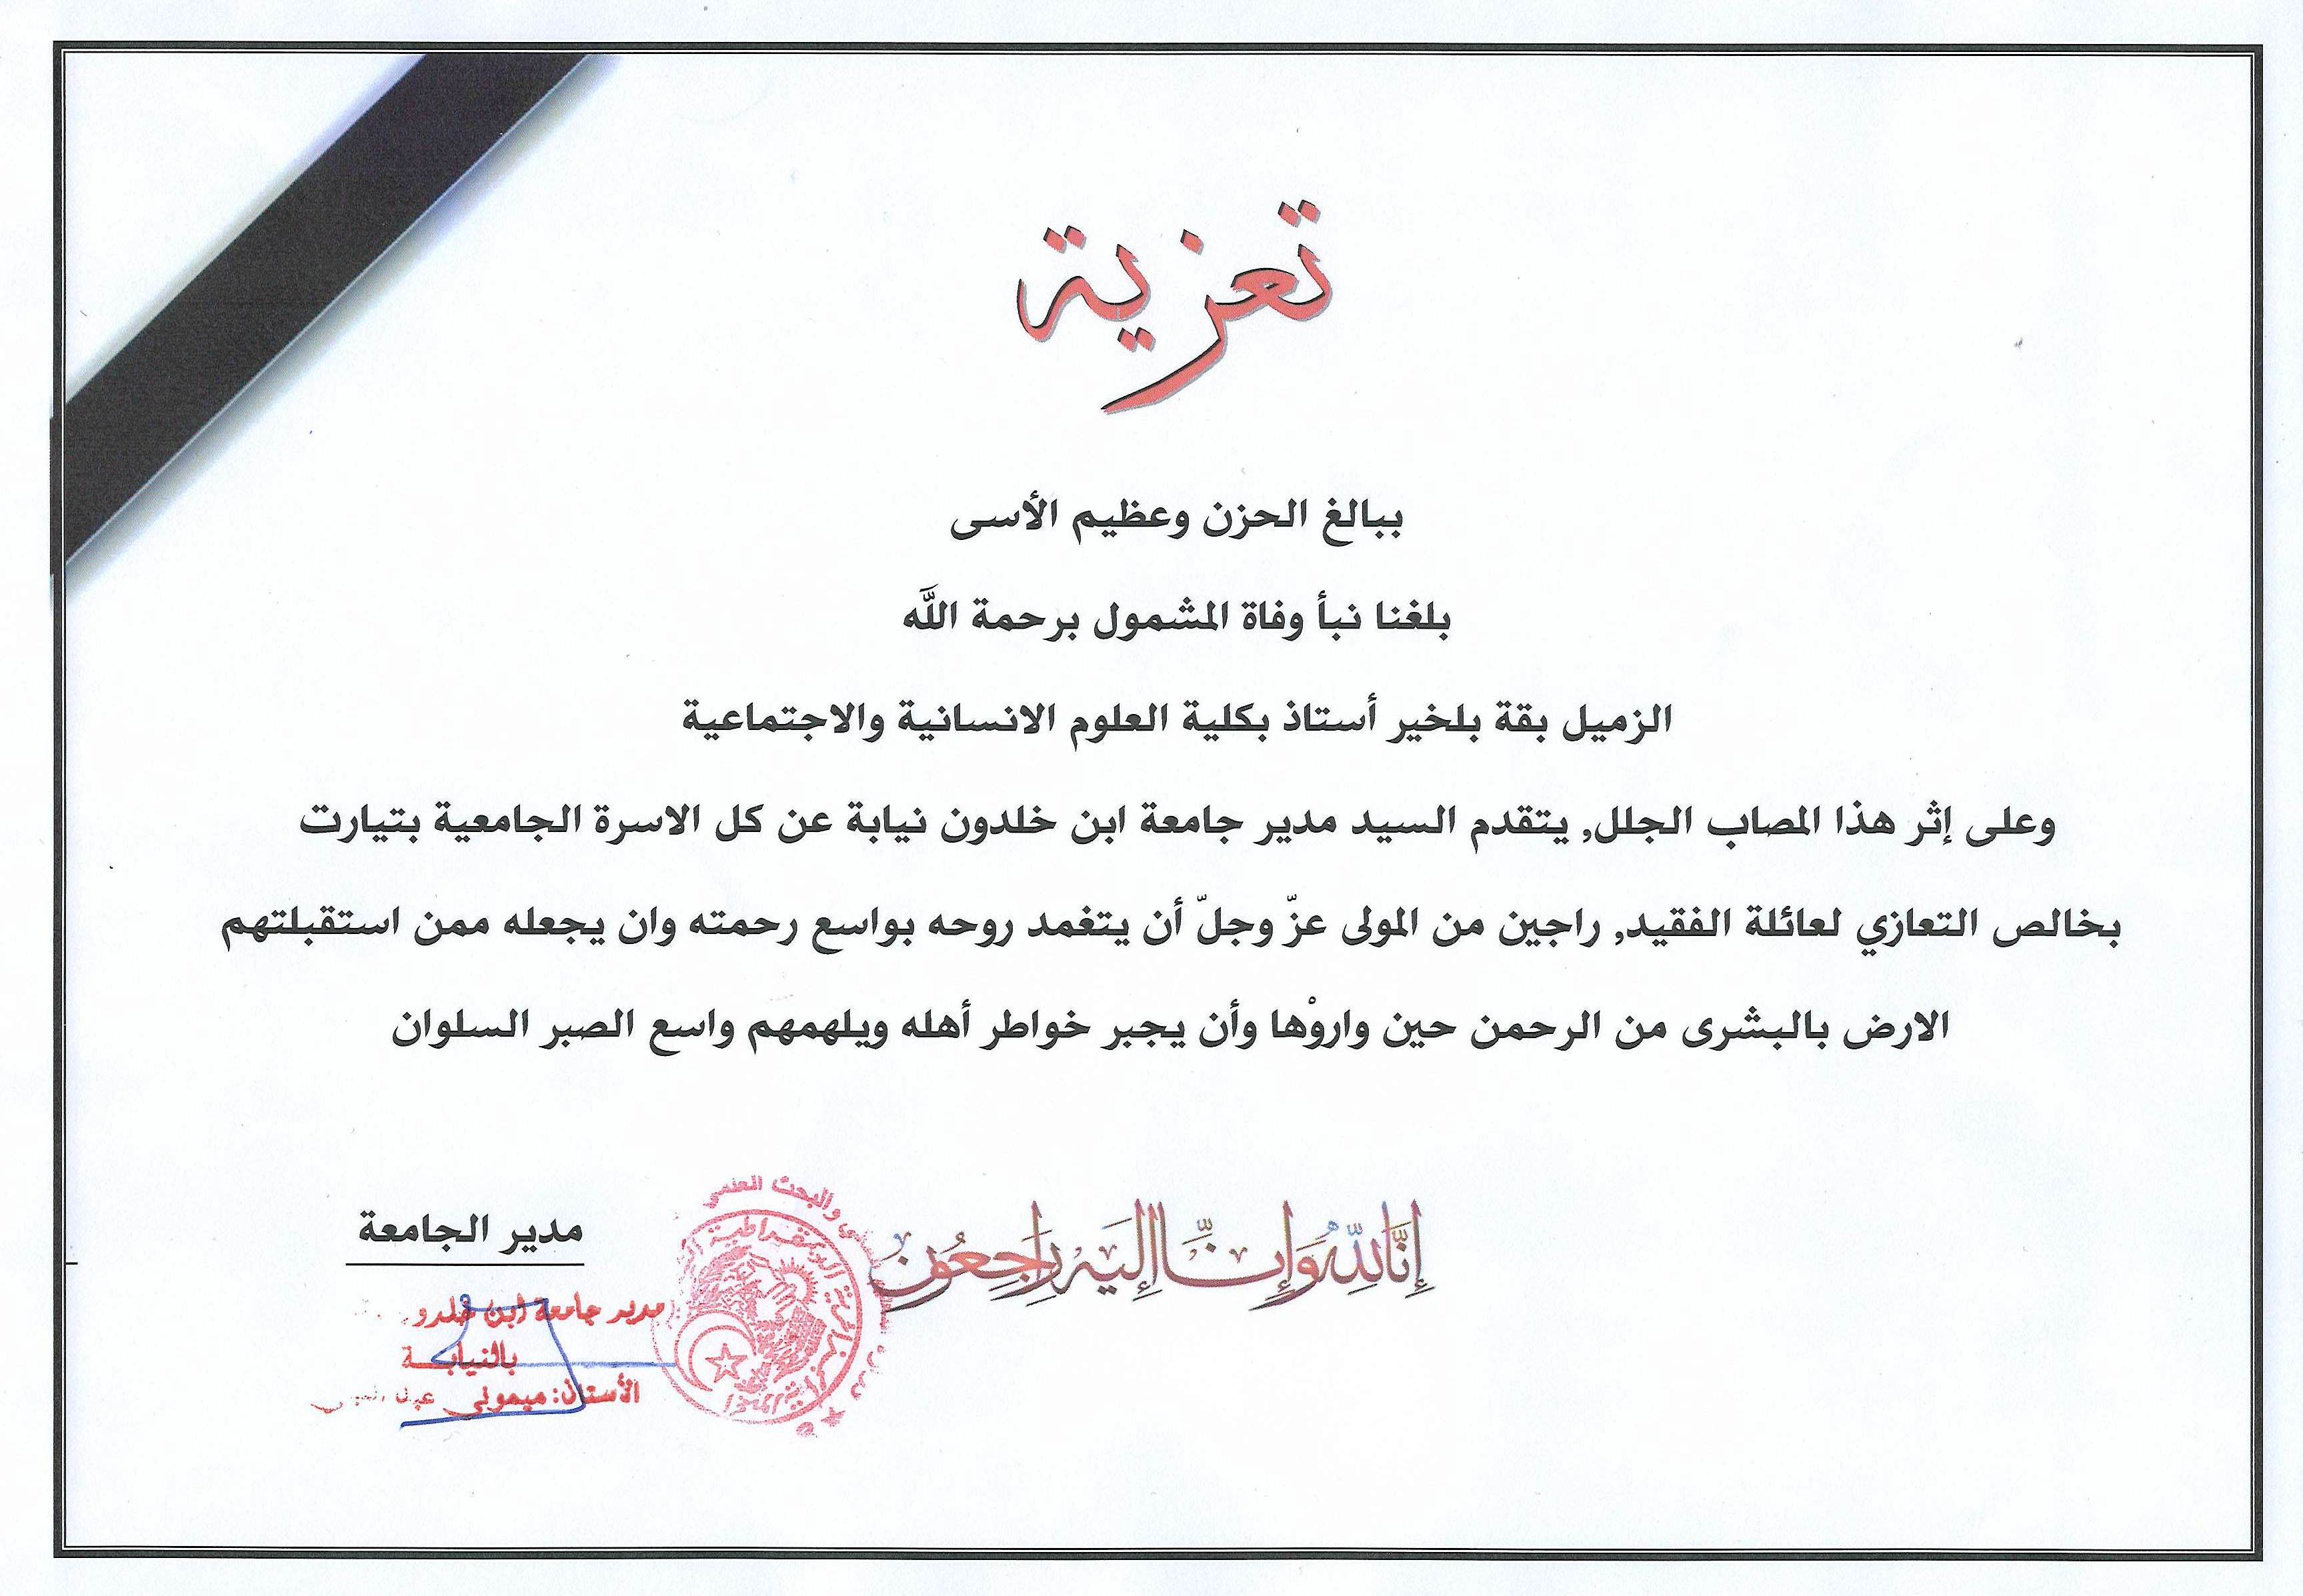 تعزية
ببالغ الحزن وعظيم الأسى
بلغنا نبأ وفاة المشمول برحمة الله
الزميل بقة بلخير أستاذ بكلية العلوم الانسانية والاجتماعية
وعلى إثر هذا المصاب الجلل, يتقدم السيد مدير جامعة ابن خلدون نيابة عن كل الاسرة الجامعية بتيارت
بخالص التعازي لعائلة الفقيد, راجين من المولى عزّ وجلّ أن يتغمد روحه بواسع رحمته وان يجعله ممن استقبلتهم
الارض بالبشرى من الرحمن حين واروْها وأن يجبر خواطر أهله ويلهمهم واسع الصبر السلوان
إِنَّا لِلّهِ وَإِنَّا إِلَيْهِ رَاجِعُونَ
مدير الجامعة
مدير جامعة ابن خلدو
بالنيابـــة
الأستاذ: ميموني
والبحث العلمي